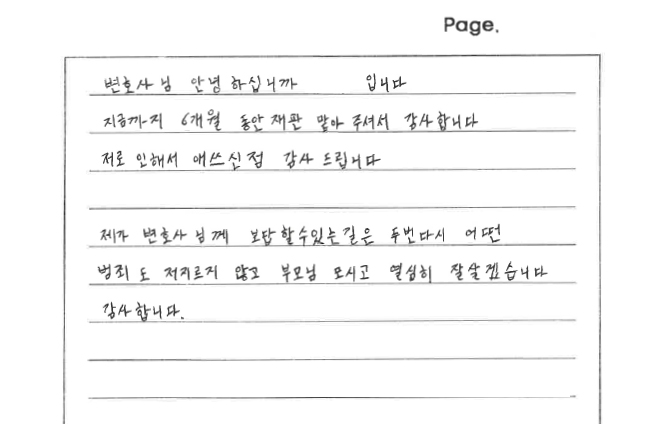 Page.
변호사님 안녕하십니까 입니다
지금까지 6개월 동안 재판 맡아 주셔서 감사합니다
저로 인해서 애쓰신점 감사드립니다
제가 변호사님께 보답할수있는길은 두번다시 어떤
범죄도 저지르지 않고 부모님 모시고 열심히 잘살겠습니다
감사합니다.